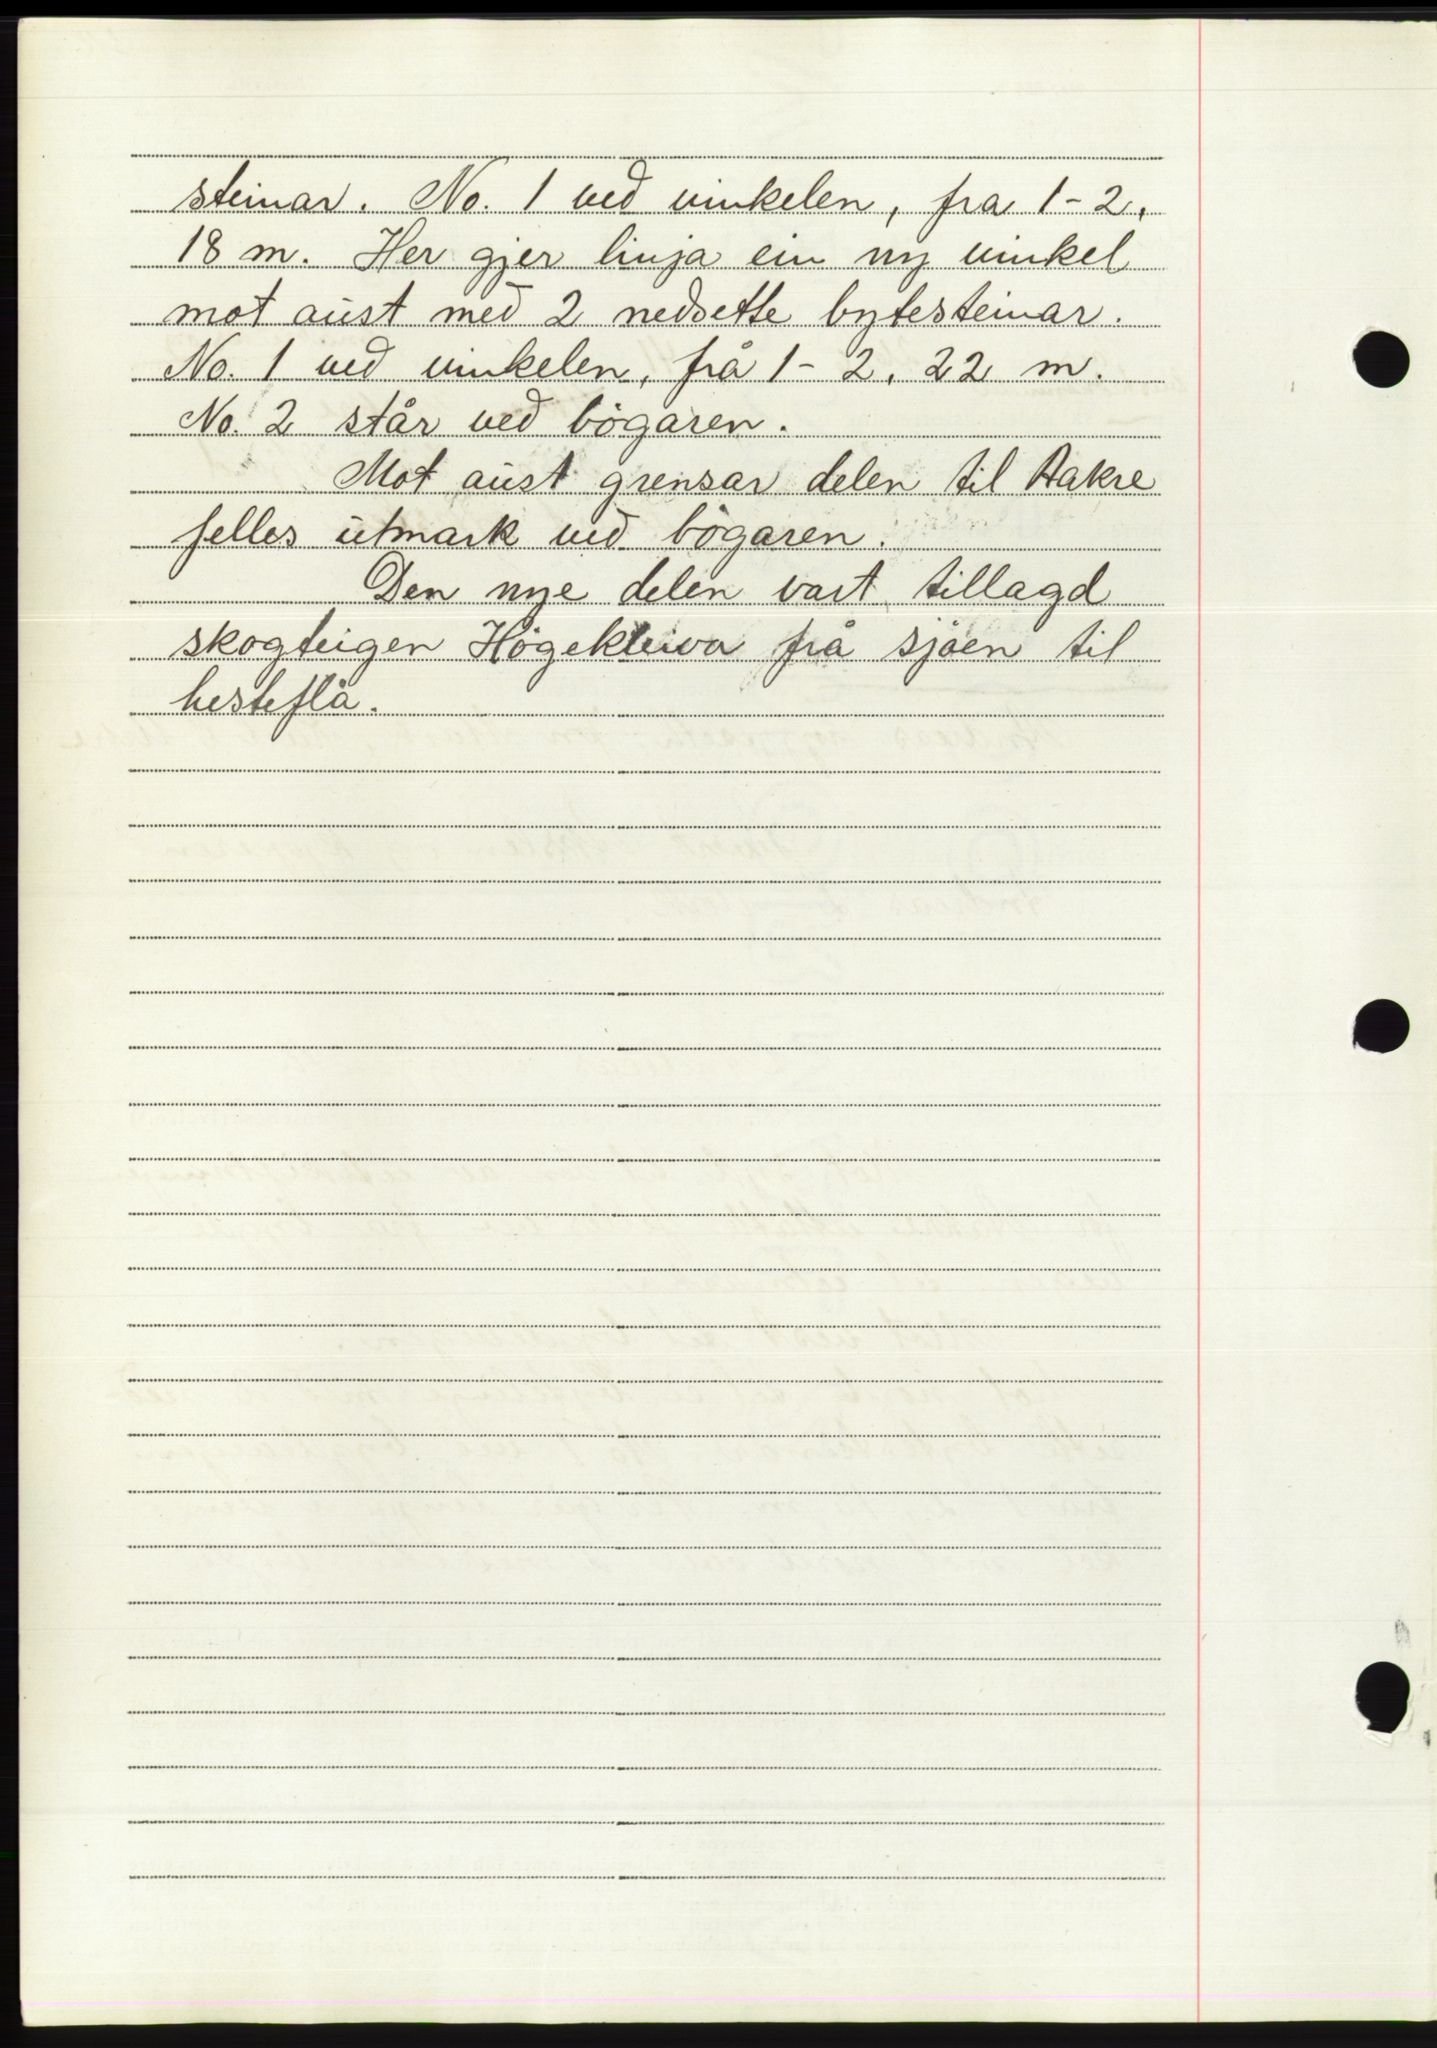 steinar. No. 1 ved vinkelen, fra 1-2,
18 m. Her gjer linja ein ny vinkel
mot aust med 2 nedsette bytesteinar.
No. 1 ved vinkelen, frå 1-2, 22 m.
No. 2 står ved bögaren.
Mot aust grensar delen til Aakre
felles utmark ved bögaren.
Den nye delen vart tillagd
skogteigen Högekleiva frå sjöen til
hesteflå.